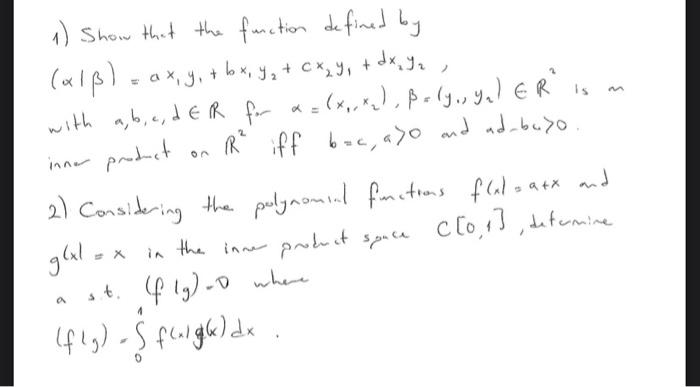 1) Show that the function defined by
(α|β) = ax₁y₁ + bx₁y₂ + cx₂y₁ + dx₂y₂ ,
with a,b,c,d ∈ R for α = (x₁,x₂), β = (y₁,y₂) ∈ R² is an
inner product on R² iff b=c, a>0 and ad-bc>0.
2) Considering the polynomial functions f(x)=a+x and
g(x) = x in the inner product space C[0,1], determine
a s.t. (f|g)=0 where
(f|g) = ∫₀¹ f(x)g(x)dx .